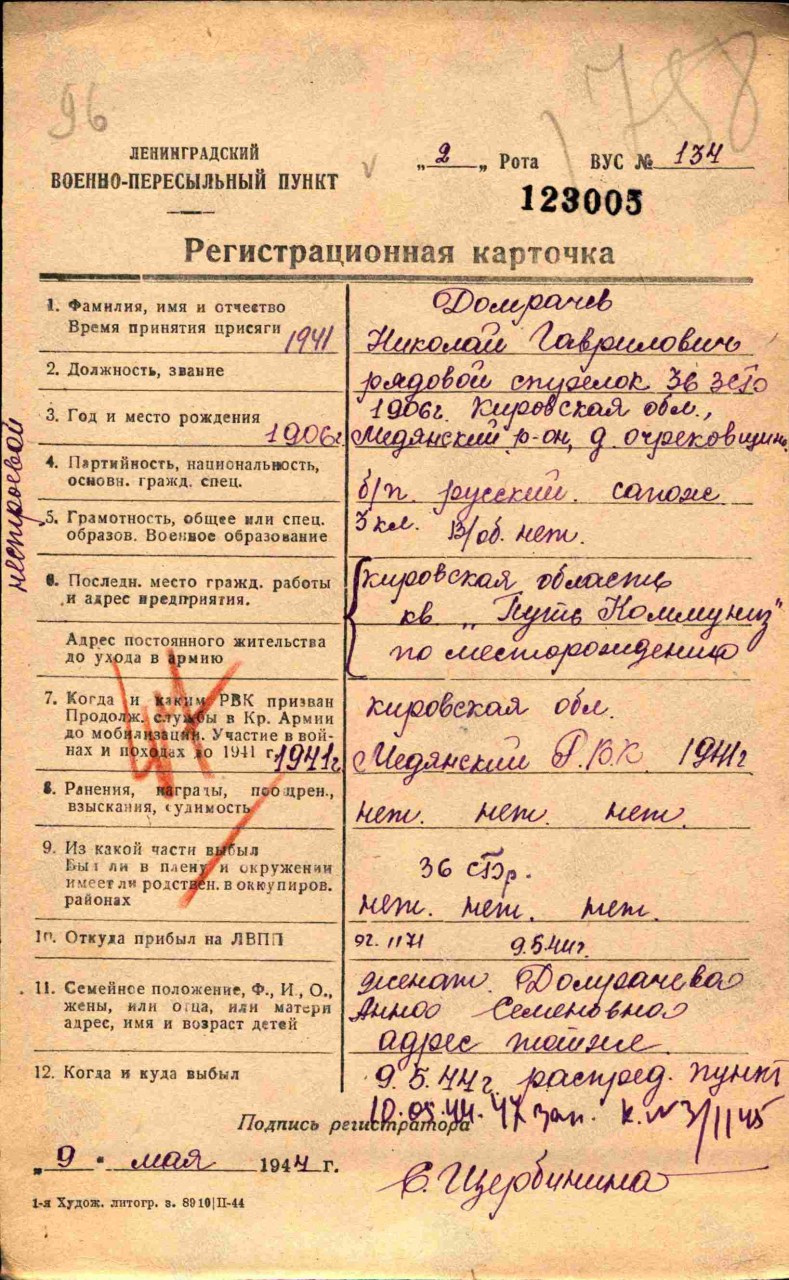 96
1788
ЛЕНИНГРАДСКИЙ
ВОЕННО-ПЕРЕСЫЛЬНЫЙ ПУНКТ
„2„ Рота ВУС № 134
123005
Регистрационная карточка
нестроевой
1. Фамилия, имя и отчество
Время принятия присяги 1941
Домрачев
Николай Гаврилович
2. Должность, звание
рядовой стрелок 36
3. Год и место рождения 1906г
1906г. Кировская обл.,
Медянский р-он, д.
4. Партийность, национальность,
основн. гражд. спец.
б/п. русский. сапож
5. Грамотность, общее или спец.
образов. Военное образование
3 кл. В/об. нет.
6. Последн. место гражд. работы
и адрес предприятия.
кировская область
"Путь Коммуниз"
Адрес постоянного жительства
до ухода в армию
по месторождению
7. Когда и каким РВК призван
Продолж. службы в Кр. Армии
до мобилизации. Участие в вой-
нах и походах до 1941 г. 1941г
кировская обл.
Медянский Р.В.К. 1941г
8. Ранения, награды, поощрен.,
взыскания, судимость
нет. нет. нет.
9. Из какой части выбыл
Был ли в плену и окружении
имеет ли родствен. в оккупиров.
районах
36
нет. нет. нет.
10. Откуда прибыл на ЛВПП
эг. 1171 9.5.44г.
11. Семейное положение, Ф., И., О.,
жены, или отца, или матери
адрес, имя и возраст детей
женат. Домрачева
Анна Семеновна
адрес тотже
12. Когда и куда выбыл
9.5.44г. распред. пункт
10.05.44. 47 зап. к. №3/1145
Подпись регистратора
„9" мая 1944 г.
Е. Щербинина
1-я Худож. литогр. з. 8910|II-44